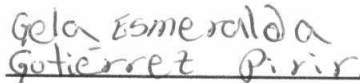 Gela Esmeralda
Gutiérret Pirir